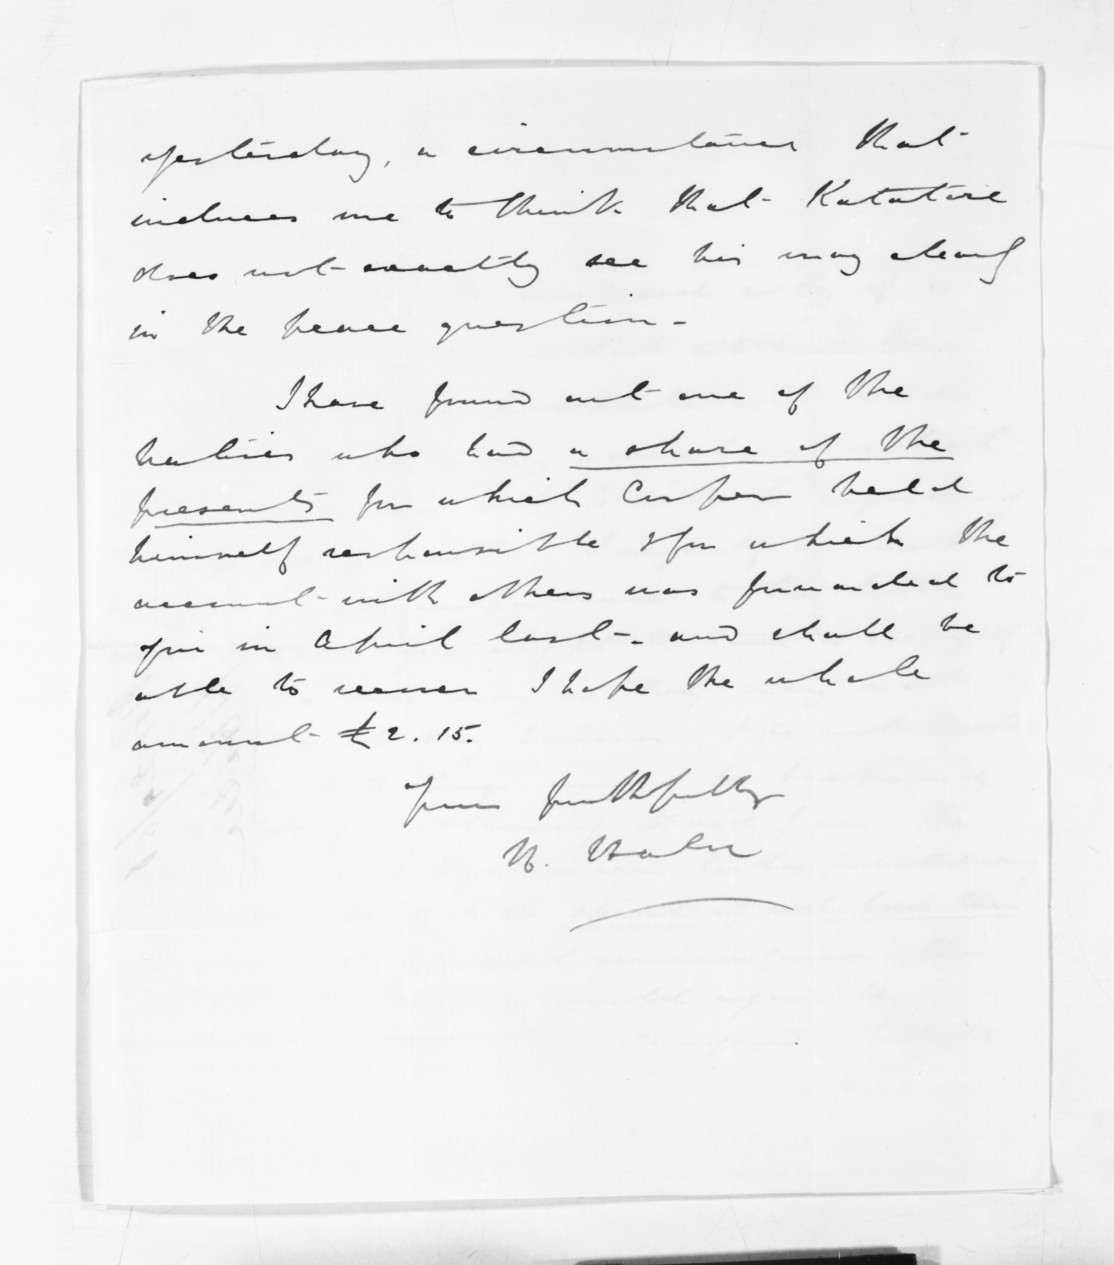 yesterday, a circumstance that
induces me to think that Katatore
does not exactly see his way clearly
in the peace question -
I have found out one of the
natives who had a share of the
presents for which Cooper held
himself responsible & for which the
account with others was forwarded to
you in April last - and shall be
able to recover I hope the whole
amount £2. 15.
Yours faithfully
H. Halse